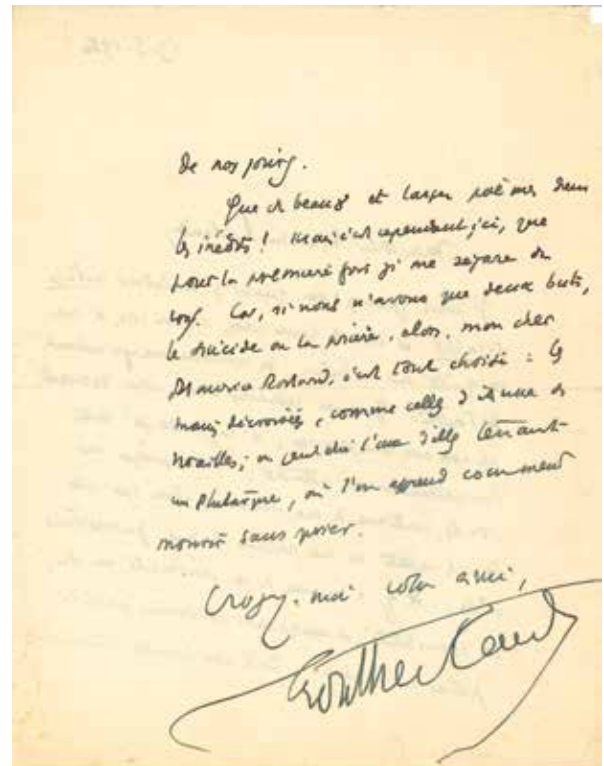 de nos jours.
Que de beaux et larges poèmes dans
les inédits ! Mais c'est cependant ici, que
pour la première fois je me sépare de
vous. Car, si nous n'avons que deux buts,
le suicide ou la prière, alors, mon cher
Maurice Rostand, c'est tout choisi : les
mains décroisées, comme celles d'Anna de
Noailles; ou peut-être l'une d'elles tenant
un Plutarque, où l'on apprend comment
mourir sans prier.
Croyez-moi votre ami,